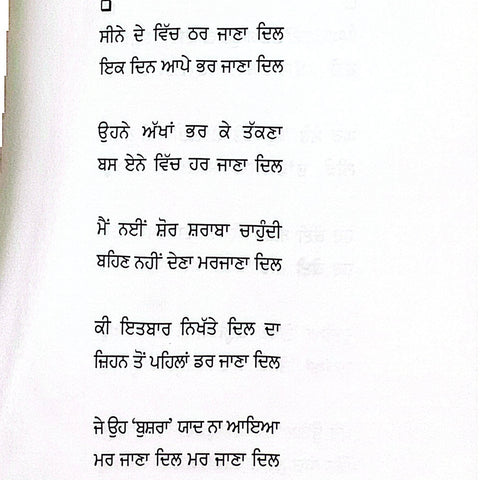 ਸੀਨੇ ਦੇ ਵਿੱਚ ਠਰ ਜਾਣਾ ਦਿਲ
ਇਕ ਦਿਨ ਆਪੇ ਭਰ ਜਾਣਾ ਦਿਲ
ਉਹਨੇ ਅੱਖਾਂ ਭਰ ਕੇ ਤੱਕਣਾ
ਬਸ ਏਨੇ ਵਿੱਚ ਹਰ ਜਾਣਾ ਦਿਲ
ਮੈਂ ਨਈਂ ਸ਼ੋਰ ਸ਼ਰਾਬਾ ਚਾਹੁੰਦੀ
ਬਹਿਣ ਨਹੀਂ ਦੇਣਾ ਮਰਜਾਣਾ ਦਿਲ
ਕੀ ਇਤਬਾਰ ਨਿਖੱਤੇ ਦਿਲ ਦਾ
ਜ਼ਿਹਨ ਤੋਂ ਪਹਿਲਾਂ ਡਰ ਜਾਣਾ ਦਿਲ
ਜੇ ਉਹ ‘ਬੁਸ਼ਰਾ’ ਯਾਦ ਨਾ ਆਇਆ
ਮਰ ਜਾਣਾ ਦਿਲ ਮਰ ਜਾਣਾ ਦਿਲ